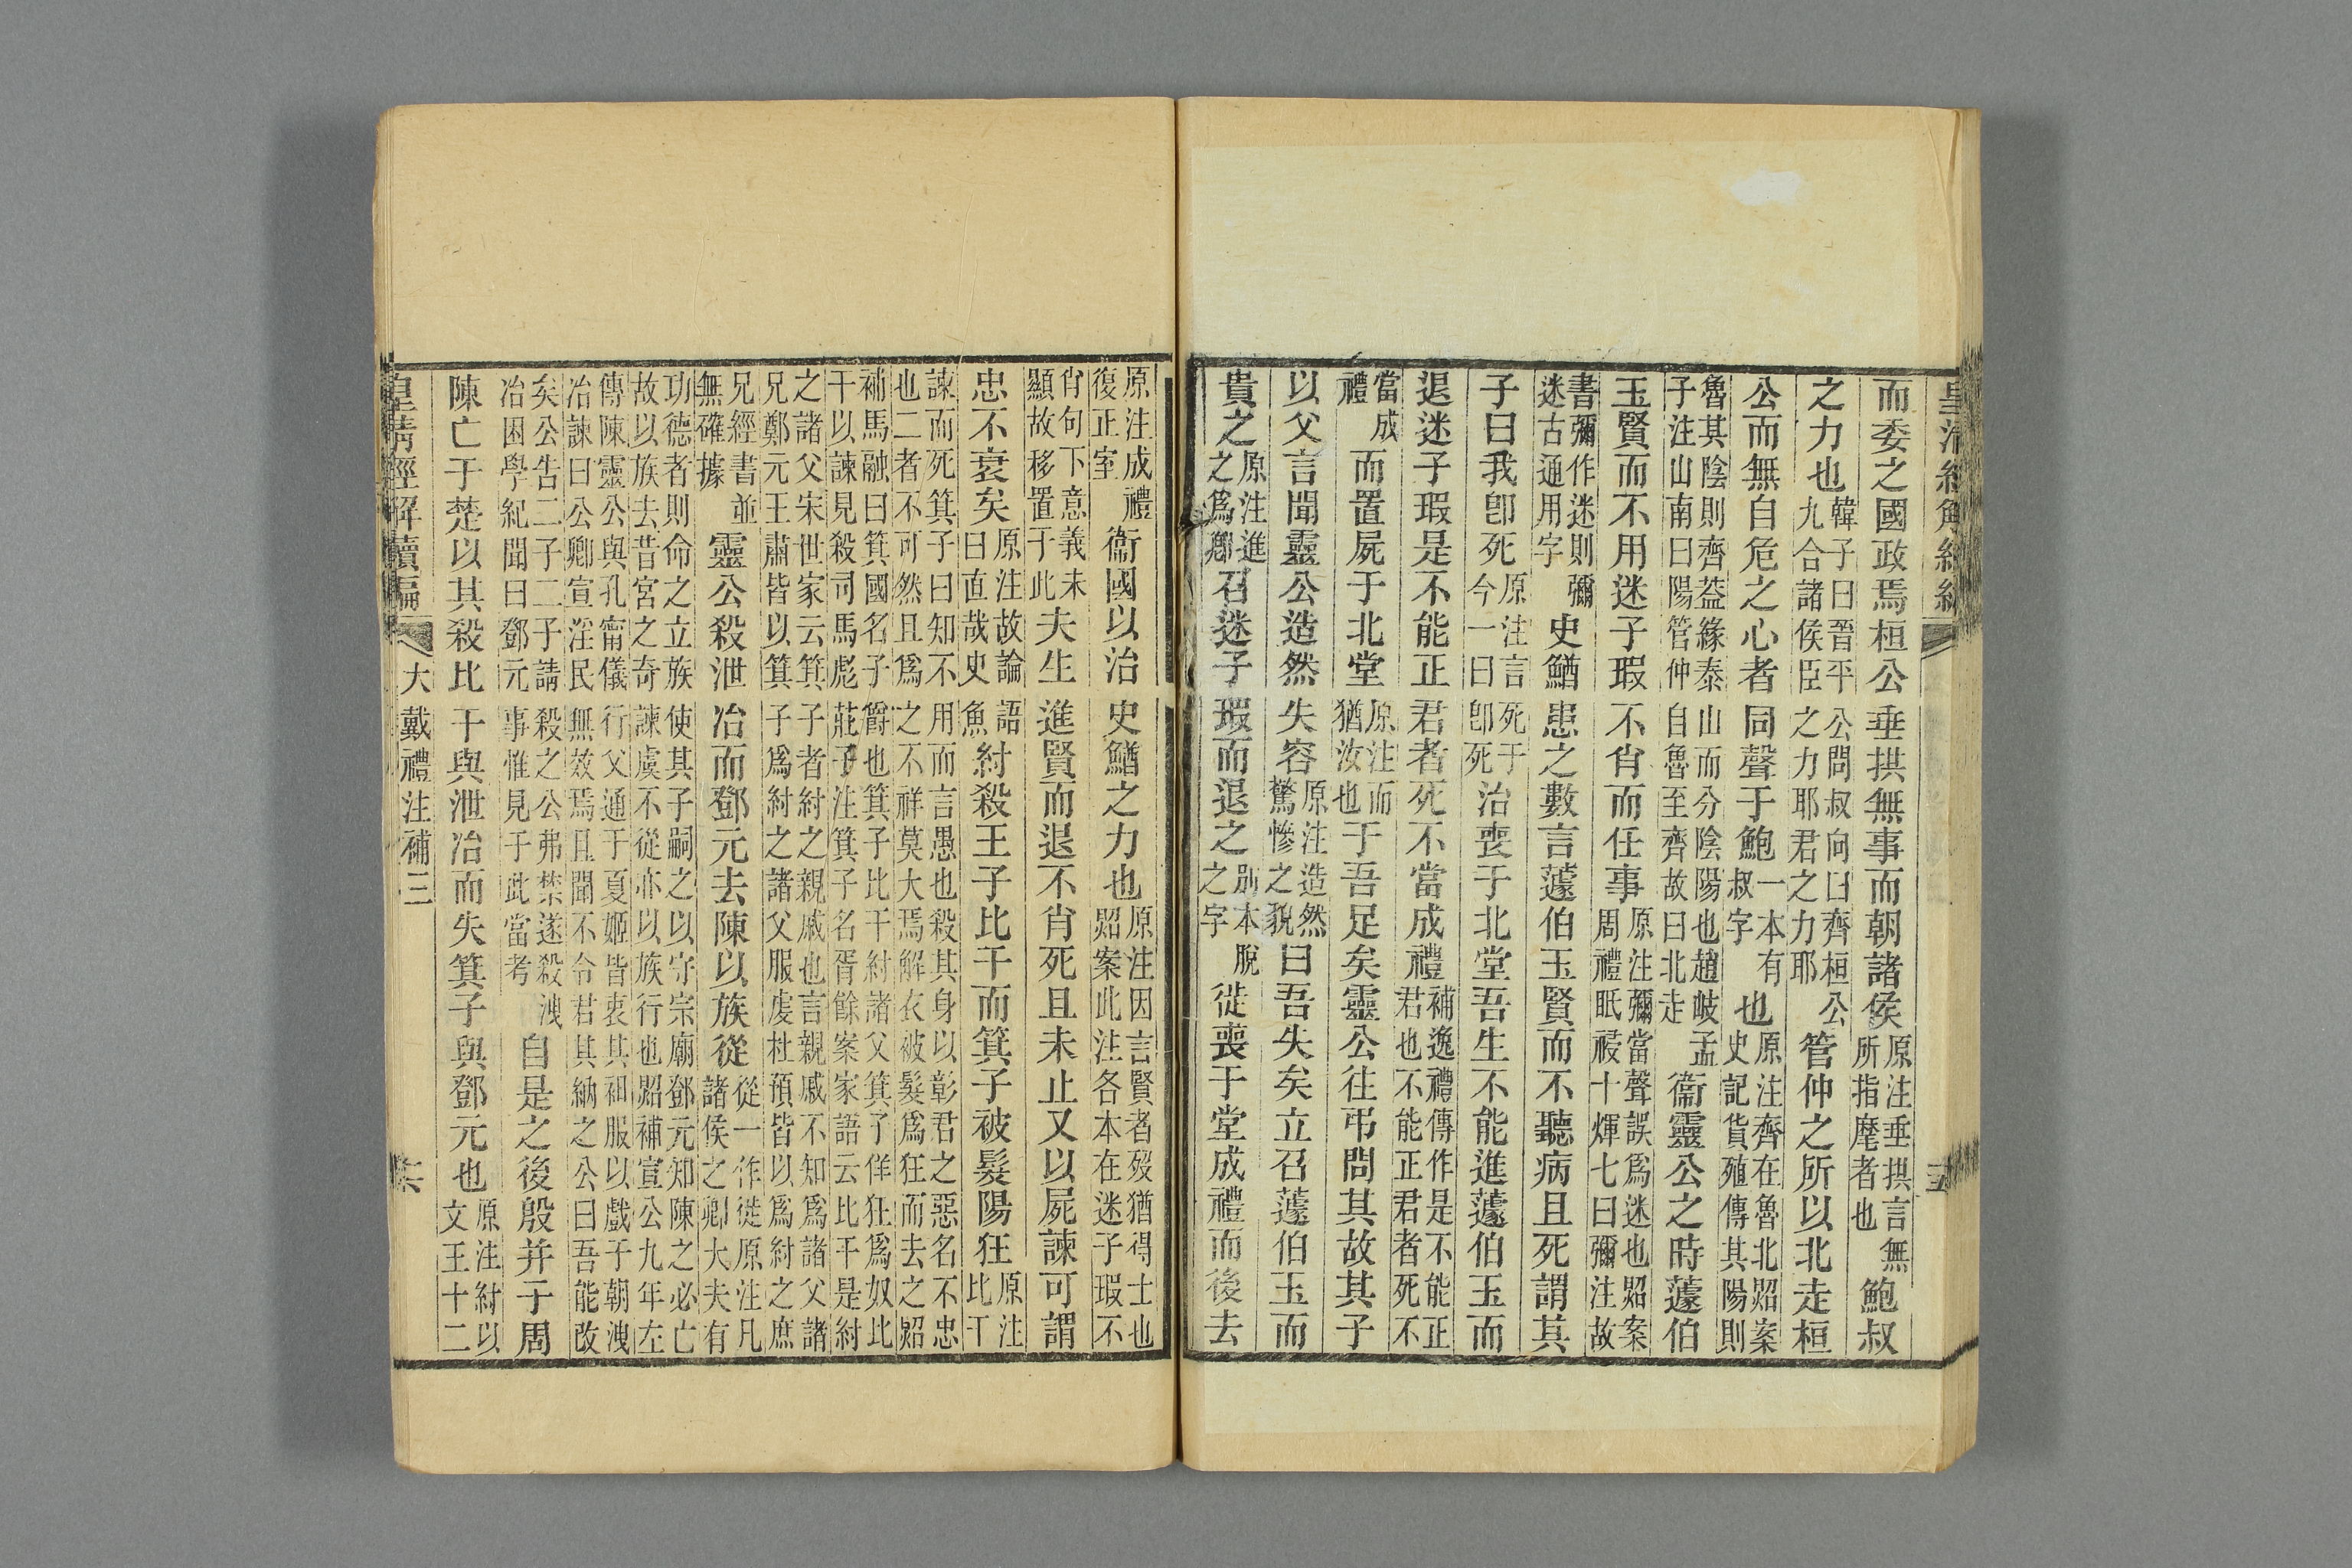 皇清經解續編
五
而委之國政焉桓公垂拱無事而朝諸侯原注垂拱言無所指麾者也鮑叔
之力也韓子曰晉平公問叔向曰齊桓公九合諸侯臣之力耶君之力耶管仲之所以北走桓
公而無自危之心者同聲于鮑叔一本有叔字也原注齊在魯北㷖案史記貨殖傳其陽則
魯其陰則齊葢緣泰山而分陰陽也趙岐孟子注山南曰陽管仲自魯至齊故曰北走衞靈公之時蘧伯
玉賢而不用迷子瑕不肖而任事原注彌當聲誤爲迷也㷖案周禮眡祲十煇七曰彌注故
書彌作迷則彌迷古通用字史鰌患之數言蘧伯玉賢而不聽病且死謂其
子曰我卽死原注言死于今一曰卽死治喪于北堂吾生不能進蘧伯玉而
退迷子瑕是不能正君者死不當成禮補逸禮傳作是不能正君也不能正君者死不
當成禮而置屍于北堂原注而猶汝也于吾足矣靈公往弔問其故其子
以父言聞靈公造然失容原注造然驚慘之貌曰吾失矣立召蘧伯玉而
貴之原注進之爲卿召迷子瑕而退之別本脫之字徙喪于堂成禮而後去
原注成禮復正室衞國以治史鰌之力也原注因言賢者歿猶得士也㷖案此注各本在迷子瑕不
肖句下意義未顯故移置于此夫生進賢而退不肖死且未止又以屍諫可謂
忠不衰矣原注故論語曰直哉史魚紂殺王子比干而箕子被髮陽狂原注比干
諫而死箕子曰知不用而言愚也殺其身以彰君之惡名不忠也二者不可然且爲之不祥莫大焉解衣被髮爲狂而去之㷖
補馬融曰箕國名子爵也箕子比干紂諸父箕子佯狂爲奴比干以諫見殺司馬彪莊子注箕子名胥餘案家語云比干是紂
之諸父宋世家云箕子者紂之親戚也言親戚不知爲諸父諸兄鄭元王肅皆以箕子爲紂之諸父服虔杜預皆以爲紂之庶
兄經書並無確據靈公殺泄冶而鄧元去陳以族從從一作徙原注凡諸侯之卿大夫有
功德者則命之立族使其子嗣之以守宗廟鄧元知陳之必亡故以族去昔宮之奇諫虞不從亦以族行也㷖補宣公九年左
傳陳靈公與孔甯儀行父通于夏姬皆衷其衵服以戲于朝洩冶諫曰公卿宣淫民無效焉且聞不令君其納之公曰吾能改
矣公告二子二子請殺之公弗禁遂殺洩冶困學紀聞曰鄧元事惟見于此當考自是之後殷并于周
陳亡于楚以其殺比干與泄冶而失箕子與鄧元也原注紂以文王十二
皇清經解續編
大戴禮注補三
六